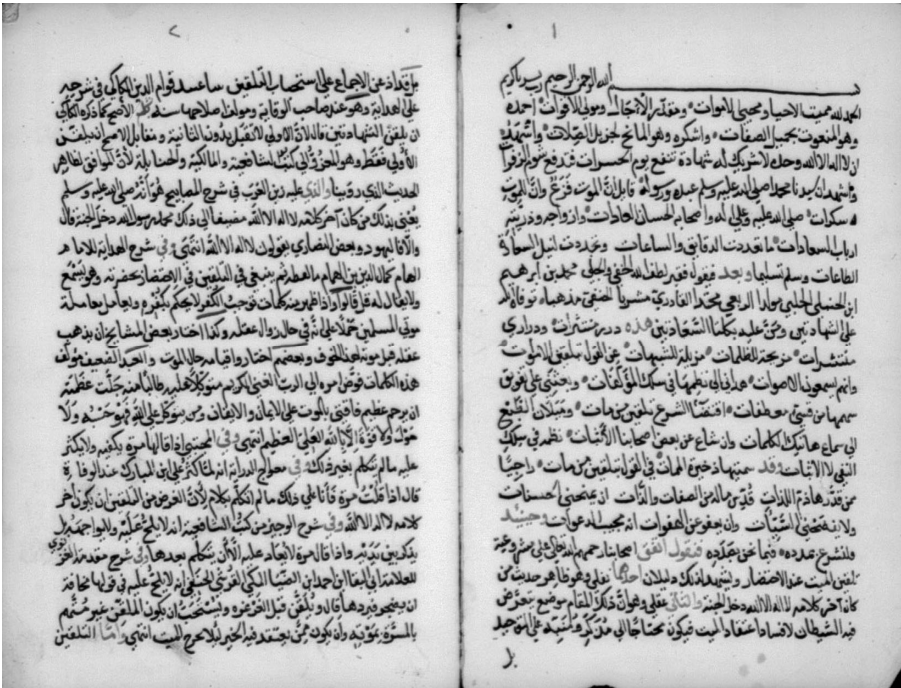 ١
بسم الله الرحمن الرحيم رب يا كريم
الحمد لله مميت الاحياء ومحيي الاموات ومقدر الآجال ومولي الاقوات احمده
وهو المنعوت بجميل الصفات واشكره وهو المانح لجزيل الصلات واشهد
ان لا اله الا الله وحده لا شريك له شهادة تنفع يوم الحسرات
واشهد ان سيدنا محمدا صلى الله عليه وسلم عبده ورسوله قابل ان الموت فزع وان للموت
سكرات صلى الله عليه وعلى اله واصحابه الحسان العادات وازواجه وذريته
ارباب السعادات ما تعددت الدقايق والساعات وتجددت لنيل السعادة
الطاعات وسلم تسليما وبعد فيقول فقير لطف الله الخفي والجلي محمد بن ابرهيم
ابن الحنبلي الحلبي مولدا الربعي محتدا القادري مشربا الحنفي مذهبا
على الشهادتين ومن عليه بكلمتا الشهادتين هذه درر منتثرات ودراري
منتشرات مزيحة للظلمات مزيلة للشبهات عن القول بتلقين الاموات
وانهم يسمعون الاصوات هداني الى نظمها في سلك المؤلفات وبعثني على تفويق
سهمها من قسي اقتضا الشرع تلقين من مات وميلان الطبع
الى سماع هاتيك الكلمات وان شاع عن بعض اصحابنا نظمه في سلك
النفي لا الاثبات وقد سميتها ذخيرة الممات في القول بتلقين من مات راجيا
ممن قدر هاذم اللذات قدس ماله من الصفات والذات ان يمنحني احسنات
ولا يفضحني وان يعفو عن الهفوات انه مجيب الدعوات وحينئذ
ولنشرع فيما نحن بصدده فنقول اتفق اصحابنا رحمهم الله تعالى على مشروعية
تلقين الميت عند الاحتضار ولشهد لذلك دليلان احدهما نقلي وهو ظاهر حديث من
كان آخر كلامه لا اله الا الله دخل الجنة والثاني عقلي وهو ان ذلك المقام موضع يتعرض
فيه الشيطان لافساد اعتقاد الميت فيكون محتاجا الى مذكر ومنبه على التوحيد
بل
٢
بل قد اذعن الاجماع على استحباب التلقين ساعتئذ قوام الدين الكاكي في شرحه
على الهداية وهو عند صاحب الوقاية ومؤلف اصلاحها سنة ثم الاصح كما ذكره الكاكي
ان يلقن الشهادتين قال لان الاولى لا تقبل بدون الثانية ومقابل الاصح انه يلقن
الأولى فقط وهو المعزو الى كتب الشافعية والمالكية والحنابلة لانه الموافق لظاهر
الحديث الذي روينا والذي عليه زين العرب في شرح المصابيح هو انه صلى الله عليه وسلم
يعني بذلك من كان آخر كلامه لا اله الا الله مضيفا الى ذلك محمد رسول الله دخل الجنة قال
والا فاليهود وبعض النصارى يقولون لا اله الا الله انتهى وفي شرح الهداية للامام
الهمام كمال الدين بن الهمام ما لفظه ثم ينبغي في التلقين في الاحتضار بحضرته وهو يسمع
ولا يقال له قل قالوا واذا ظهر منه كلمات توجب الكفر لا يحكم بكفره ويعامل معاملة
موتى المسلمين حملا على انه في حال زوال عقله وكذا اختار بعض المشايخ ان يذهب
عقله قبل موته لهذا الخوف وبعضهم اختار وا قيامه حال الموت والعبد الضعيف مؤلف
هذه الكلمات فوض امره الى الرب الغني الكريم متوكلا عليه طالبا منه جلت عظمته
ان يرحم عظيم فاقتي بالموت على الايمان والايقان ومن يتوكل على الله فهو حسبه ولا
حول ولا قوة الا بالله العلي العظيم انتهى وفي المجتبى اذا قالها مرة يكفيه ولا يكثر
عليه ما لم يتكلم بغير ذلك وفي معراج الدراية انه لما اكثر على ابن المبارك عند الوفاة
قال اذا قلت مرة فأنا على ذلك ما لم اتكلم بكلام لان الغرض من التلقين ان يكون آخر
كلامه لا اله الا الله وفي شرح الوجيز من كتب الشافعية انه لا يلح عليه ولا يواجهه بل
يذكر بين يديه واذا قال مرة لا يعاد عليه الا ان يتكلم بعدها وفي شرح مقدمة الغز
نوي
للعلامة ابي البقا ابن احمد ابن الضيا المكي القرشي الحنفي انه لا يلح عليه في قولها مخافة
ان يضجر فيردها قال ويلقن قبل الغرغرة ويستحب ان يكون الملقن غير متهم
بالمسرة بموته وان يكون ممن يعتقد فيه الخير ليلا يحرج الميت انتهى واما التلقين